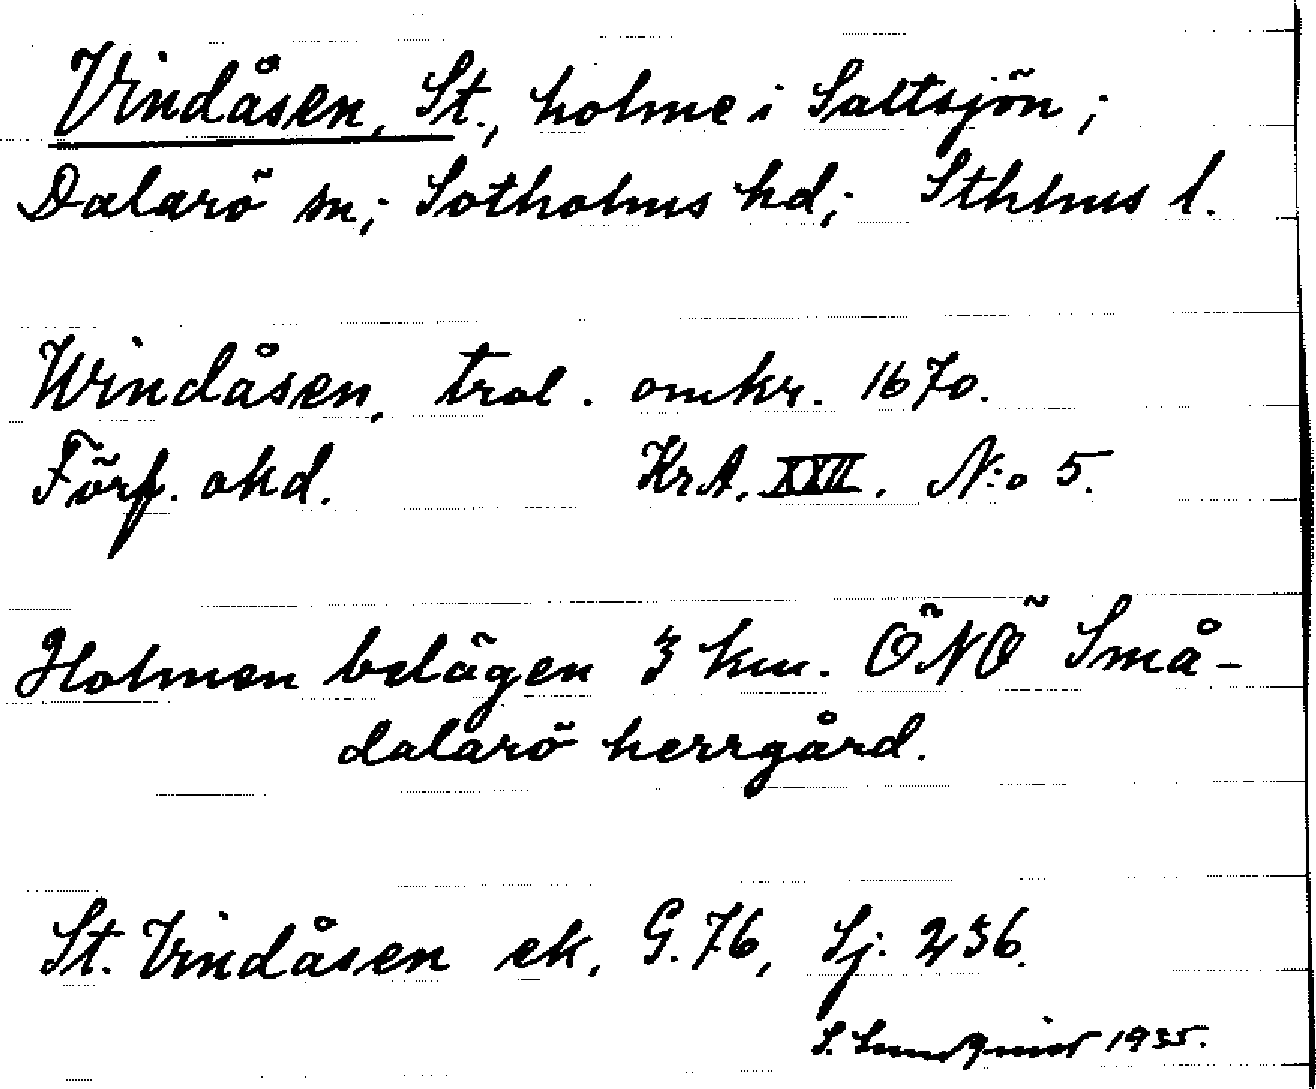 Vindåsen, St., holme i Saltsjön;
Dalarö sn; Sotholms hd; Sthlms l.
Windåsen, trol. omkr. 1670.
Förf. okd. KrA. XXII. N:o 5.
Holmen belägen 3 km. ÖNÖ Små-
dalarö herrgård.
St. Vindåsen ek. G. 76, Sj. 236.
S. Lundqvist 1935.